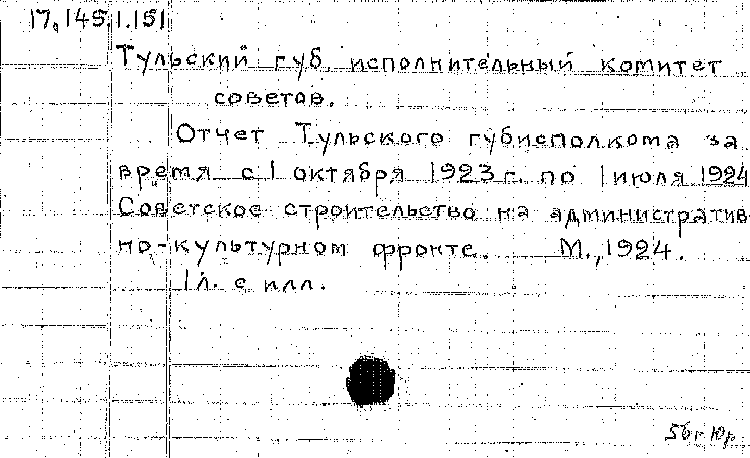 17.145.1.151
Тульский губ. исполнительный комитет
советов.
Отчет Тульского губисполкома за
время с 1 октября 1923 г. по 1 июля 1924
Советское строительство на административ-
но-культурном фронте. М., 1924.
1 л. с илл.
56 г